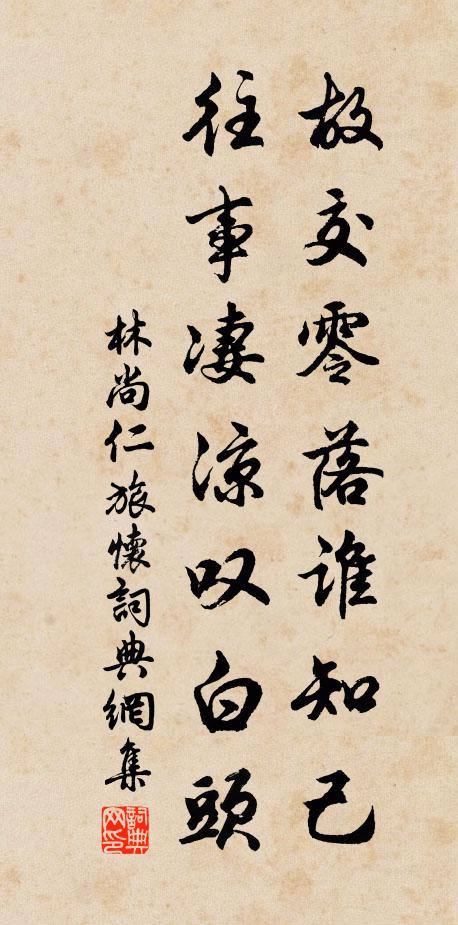 故交零落谁知己
往事凄凉叹白頭
林尚仁旅懷詞典網集
詞典网印